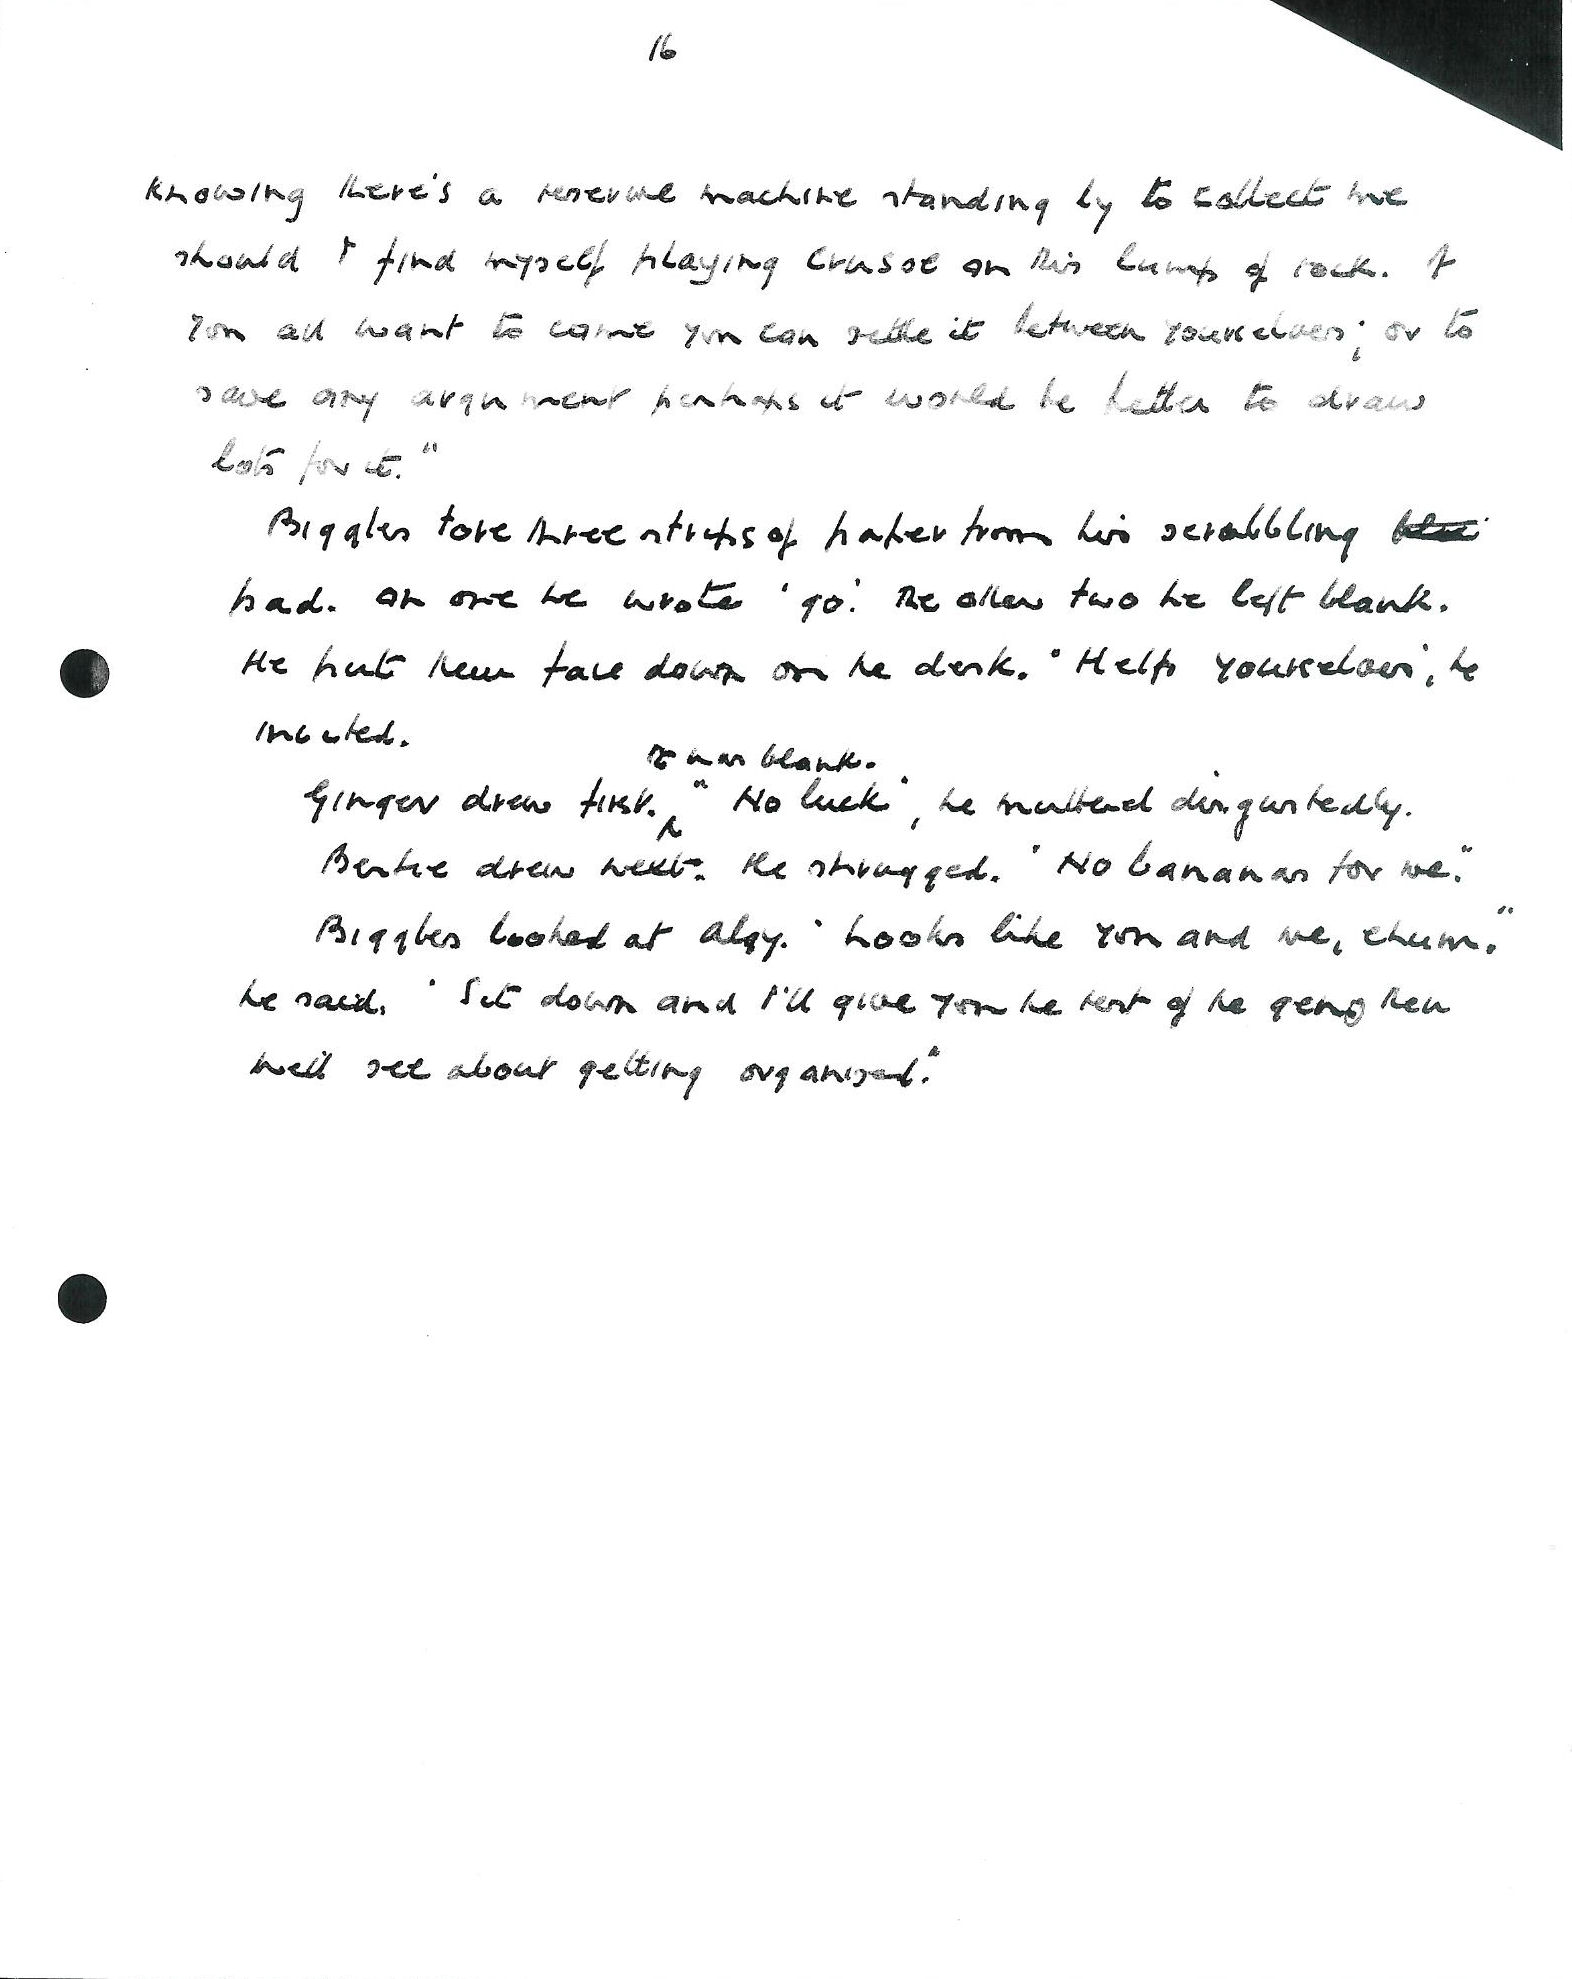 16
knowing there's a reserve machine standing by to collect me
should I find myself playing Crusoe on this lump of rock. If
you all want to come you can settle it between yourselves; or to
save any argument perhaps it would be better to draw
lots for it."
Biggles tore three strips of paper from his scrabbling
pad. On one he wrote 'go'. The other two he left blank.
He put them face down on the desk. "Help yourselves", he
invited.
It was blank.
Ginger drew first. "No luck", he muttered disgustedly.
Bertie drew next. He shrugged. "No bananas for me."
Biggles looked at Algy. "Looks like you and me, chum."
he said. "Sit down and I'll give you the rest of the gen then
we'll see about getting organised."